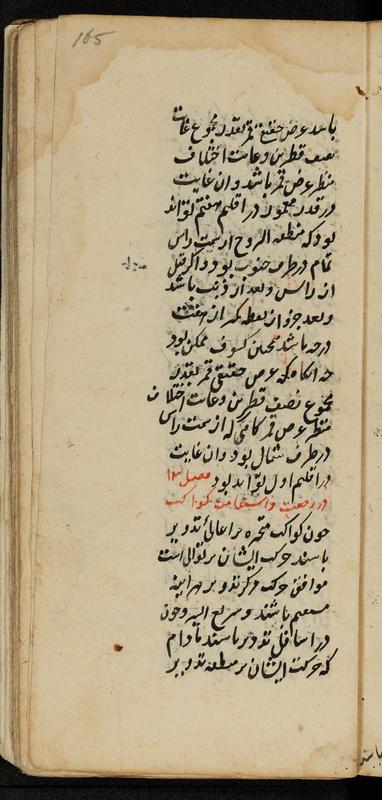 165
باشد عرض حقیقی قمر بقدر مجموع غایت
نصف قطرین و غایت اختلاف
منظر عرض قمر باشد و ان غایت
در قدر معمور در اقلیم هفتم تواند
بود که منطقه البروج از سمت راس
تمام در طرف جنوب بود و اگر قبل
از راس و بعد از ذنب باشد
و بعد جزو از نقطه کمتر از هفت
درجه باشد همچنین کسوف ممکن بود
چه انکاه که عرض حقیقی قمر بقدر
مجموع نصف قطرین و غایت اختلاف
منظر عرض قمر کاهی که از سمت راس
در طرف شمال بود و ان غایت
در اقلیم اول تواند بود فصل
در رجعت و استقامت کواکب
چون کواکب متحیره بر اعالی تدویر
باشند حرکت ایشان بر توالی است
موافق حرکت مرکز تدویر هر آینه
مستقیم باشند و سریع السیر و چون
در اسافل تدویر باشند مادام
که حرکت ایشان بر منطقه تدویر